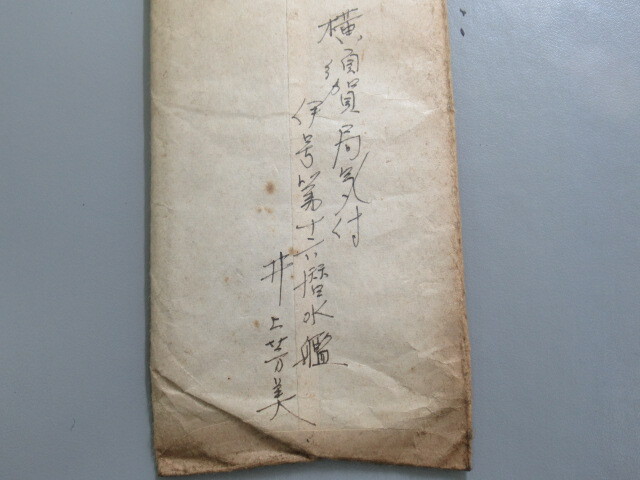 横須賀局気付
伊号第十六潜水艦
井上芳美